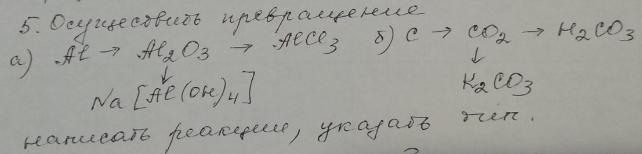 5. Осуществить превращение
а) Al → Al₂O₃ → AlCl₃ б) C → CO₂ → H₂CO₃
↓ ↓
Na[Al(OH)₄] K₂CO₃
написать реакции, указать тип.